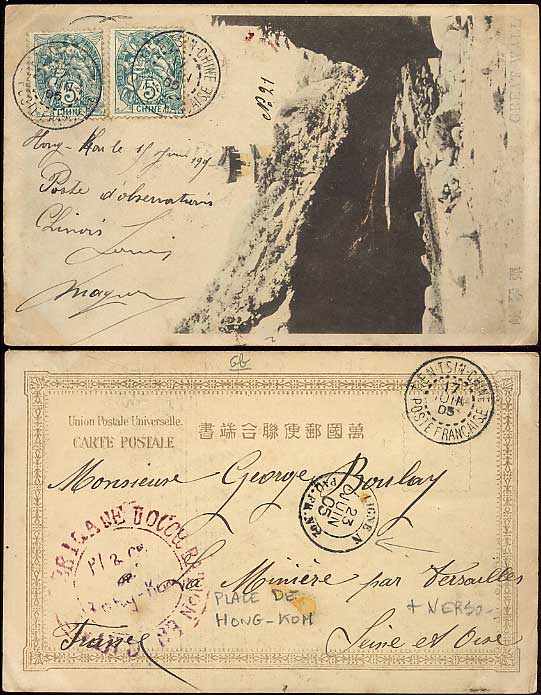 TIEN-TSIN-CHINE
POSTE FRANÇAISE
5
5
CHINE
CHINE
GREAT WALL
Hong-Kou le 15 Juin 190
Poste d'observations
Chinois
Louis
TIEN-TSIN-CHINE
17
JUIN
05
POSTE FRANÇAISE
Union Postale Universelle.
CARTE POSTALE
萬國郵便聯合端書
Monsieur George Boulay
LIGNE N
23
JUIN
05
PAQ. FR. Nº2
BRIGADE D'OCCUPATION
Hong-Kou
La Minière par Versailles
PLACE DE
HONG-KOU
+ VERSO
France
Seine et Oise